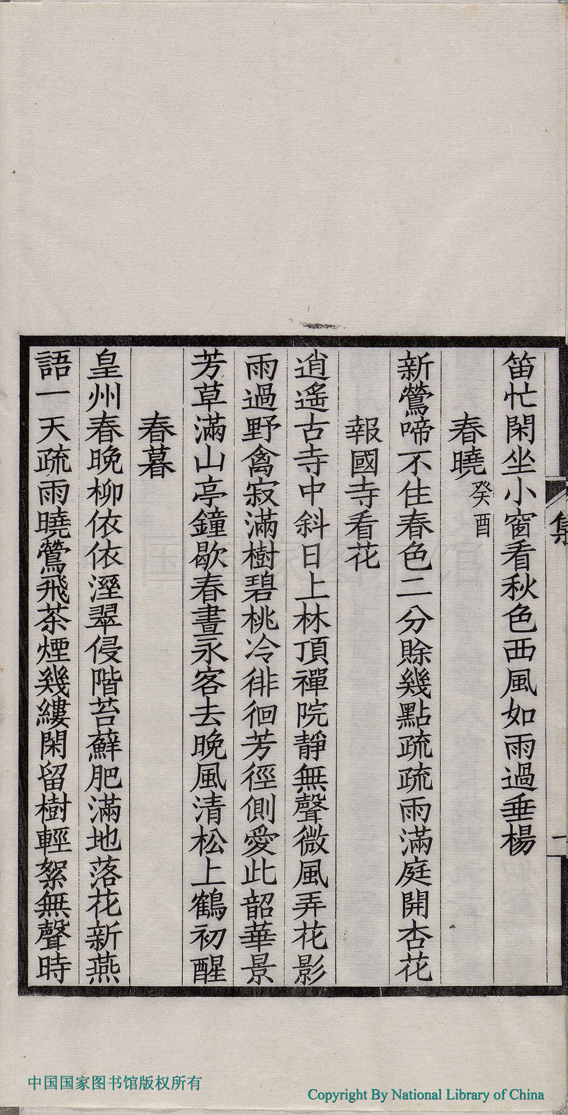 笛忙閑坐小窗看秋色西風如雨過垂楊
春曉癸酉
新鶯啼不住春色二分賒幾點疏疏雨滿庭開杏花
報國寺看花
逍遙古寺中斜日上林頂禪院靜無聲微風弄花影
雨過野禽寂滿樹碧桃冷徘徊芳徑側愛此韶華景
芳草滿山亭鐘歇春晝永客去晚風清松上鶴初醒
春暮
皇州春晚柳依依溼翠侵階苔蘚肥滿地落花新燕
語一天疏雨曉鶯飛茶煙幾縷閑留樹輕絮無聲時
集
一
中国国家图书馆版权所有
Copyright By National Library of China